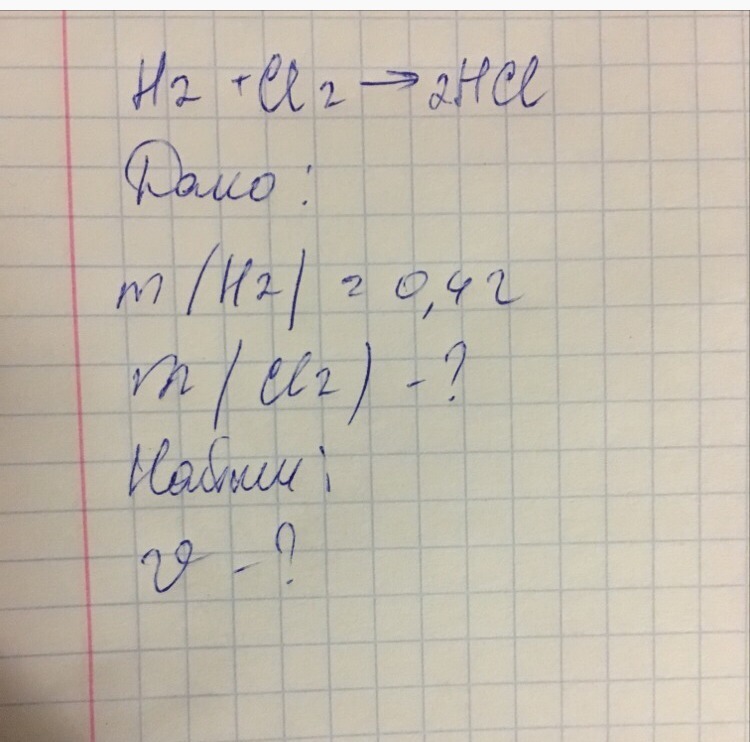 H2 + Cl2 → 2HCl
Дано:
m (H2) = 0,4 г
m (Cl2) - ?
Найти:
ν - ?